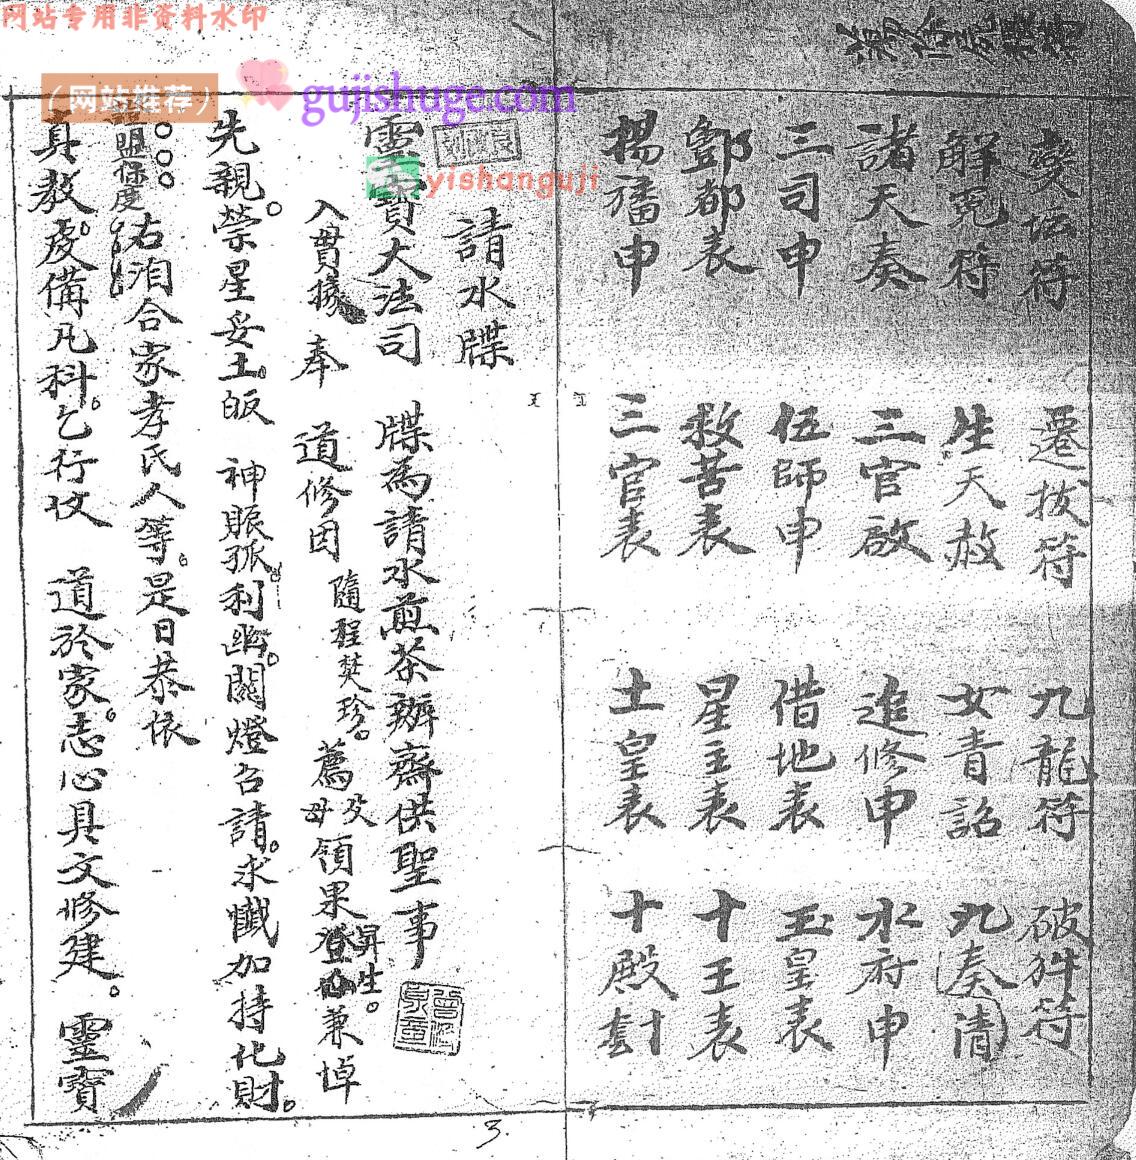 网站专用非资料水印
（网站推荐）
gujishuge.com
yishanguji
坛符 遷拔符 九龍符 破符
解冤符 生天赦 女青詔 九奏清
諸天奏 三官啟 追修申 水府申
三司申 伍師申 借地表 玉皇表
酆都表 救苦表 星主表 十王表
楊旛申 三官表 土皇表 十殿
請水牒
靈寶大法司 牒為請水煎茶辦齋供聖事
入貫據 奉 道修因 隨程焚珍。薦 母 及 領果登 昇生。兼悼
先親。榮星妥土。皈 神賑孤。利幽。關燈召請。求懺加持化財。
○○○右洎合家孝氏人等。是日恭依
盟保度
真教。虔備凡科。乞行坟 道於家。志心具文修建。靈寶
3.